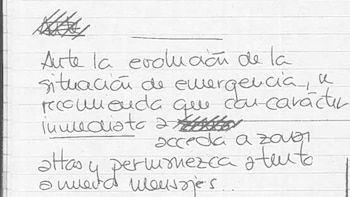 Ante la evolución de la
situación de emergencia, se
recomienda que con carácter
inmediato a
acceda a zonas
altas y permanezca atento
a nuevos mensajes.